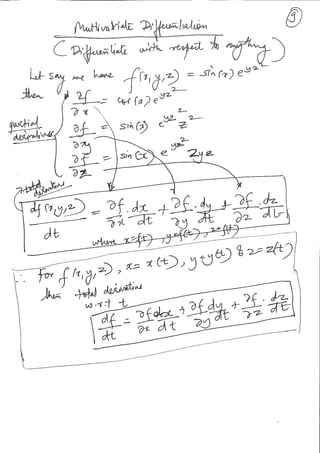 9
Multivariate Differentiation
( Differentiate with respect to anything )
Let say we have f(x,y,z) = sin(x) e^{yz^2}
then
partial derivatives
∂f/∂x = cos(x) e^{yz^2}
∂f/∂y = sin(x) e^{yz^2} z^2
∂f/∂z = sin(x) e^{yz^2} 2yz
→ total derivative
df(x,y,z)/dt = ∂f/∂x . dx/dt + ∂f/∂y . dy/dt + ∂f/∂z dz/dt
where x=f(t), y=f(t), z=f(t)
∴ for f(x,y,z), x = x(t), y=y(t) & z=z(t)
then total derivative
w.r.t t
df/dt = ∂f/∂x dx/dt + ∂f/∂y dy/dt + ∂f/∂z . dz/dt